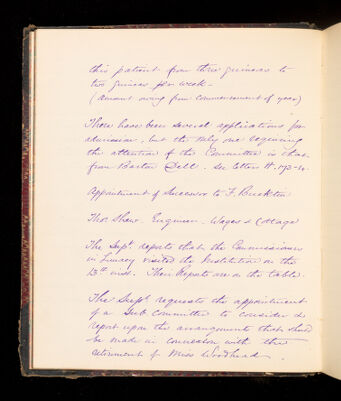 this patient from three guineas to
two guineas per week -
(amount owing from commencement of year)
There have been several applications for
admission, but the only one requiring
the attention of the Committee is that
from Barton Dell. See letters
Appointment of Successor to F. Buckton
Thos Shaw. Engineer. Wages & Cottage
The Supt. reports that the Commissioners
in Lunacy visited the Institution on the
13th inst. Their Reports are on the table.
The Supt. requests the appointment
of a Sub Committee to consider &
report upon the arrangements that should
be made in connexion with the
retirement of Miss Woodhead.